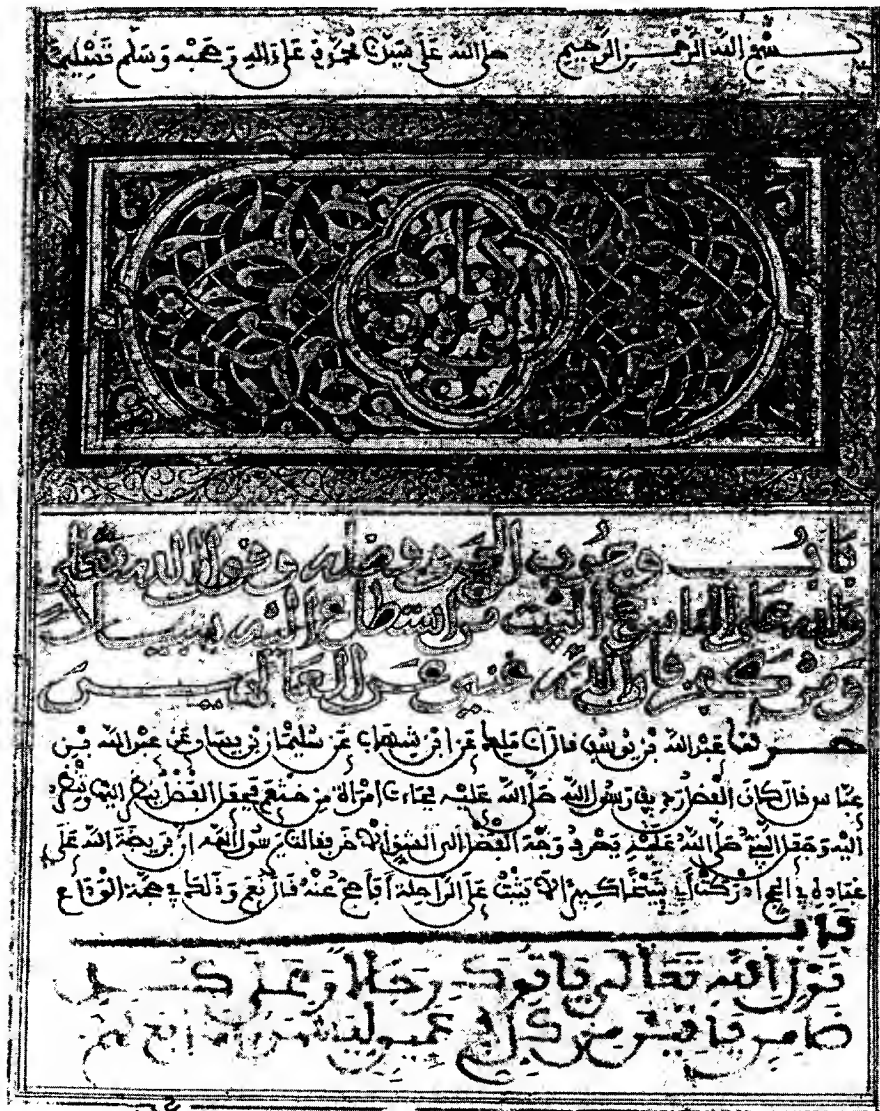 بسم الله الرحمن الرحيم صلى الله على سيدنا محمد وعلى ءاله وصحبه وسلم تسليما
كتاب
باب وجوب الحج وفضله وقول الله تعلى
ولله على الناس حج البيت من استطاع إليه سبيلا
ومن كفر فإن الله غني عن العالمين
حدثنا عبد الله بن يوسف قال انا ملك عن ابن شهاب عن سليمان بن يسار عن عبد الله بن
عباس قال كان الفضل رديف رسول الله صلى الله عليه فجاءت امرأة من خثعم فجعل الفضل ينظر اليها وتنظر
اليه وجعل النبي صلى الله عليه يصرف وجه الفضل الى الشق الاخر فقالت يرسول الله ان فريضة الله على
عباده في الحج ادركت أبي شيخا كبيرا لا يثبت على الراحلة أفأحج عنه قال نعم وذلك في حجة الوداع
باب
قول الله تعالى ياتوك رجالا وعلى كل
ضامر ياتين من كل فج عميق ليشهدوا منافع لهم